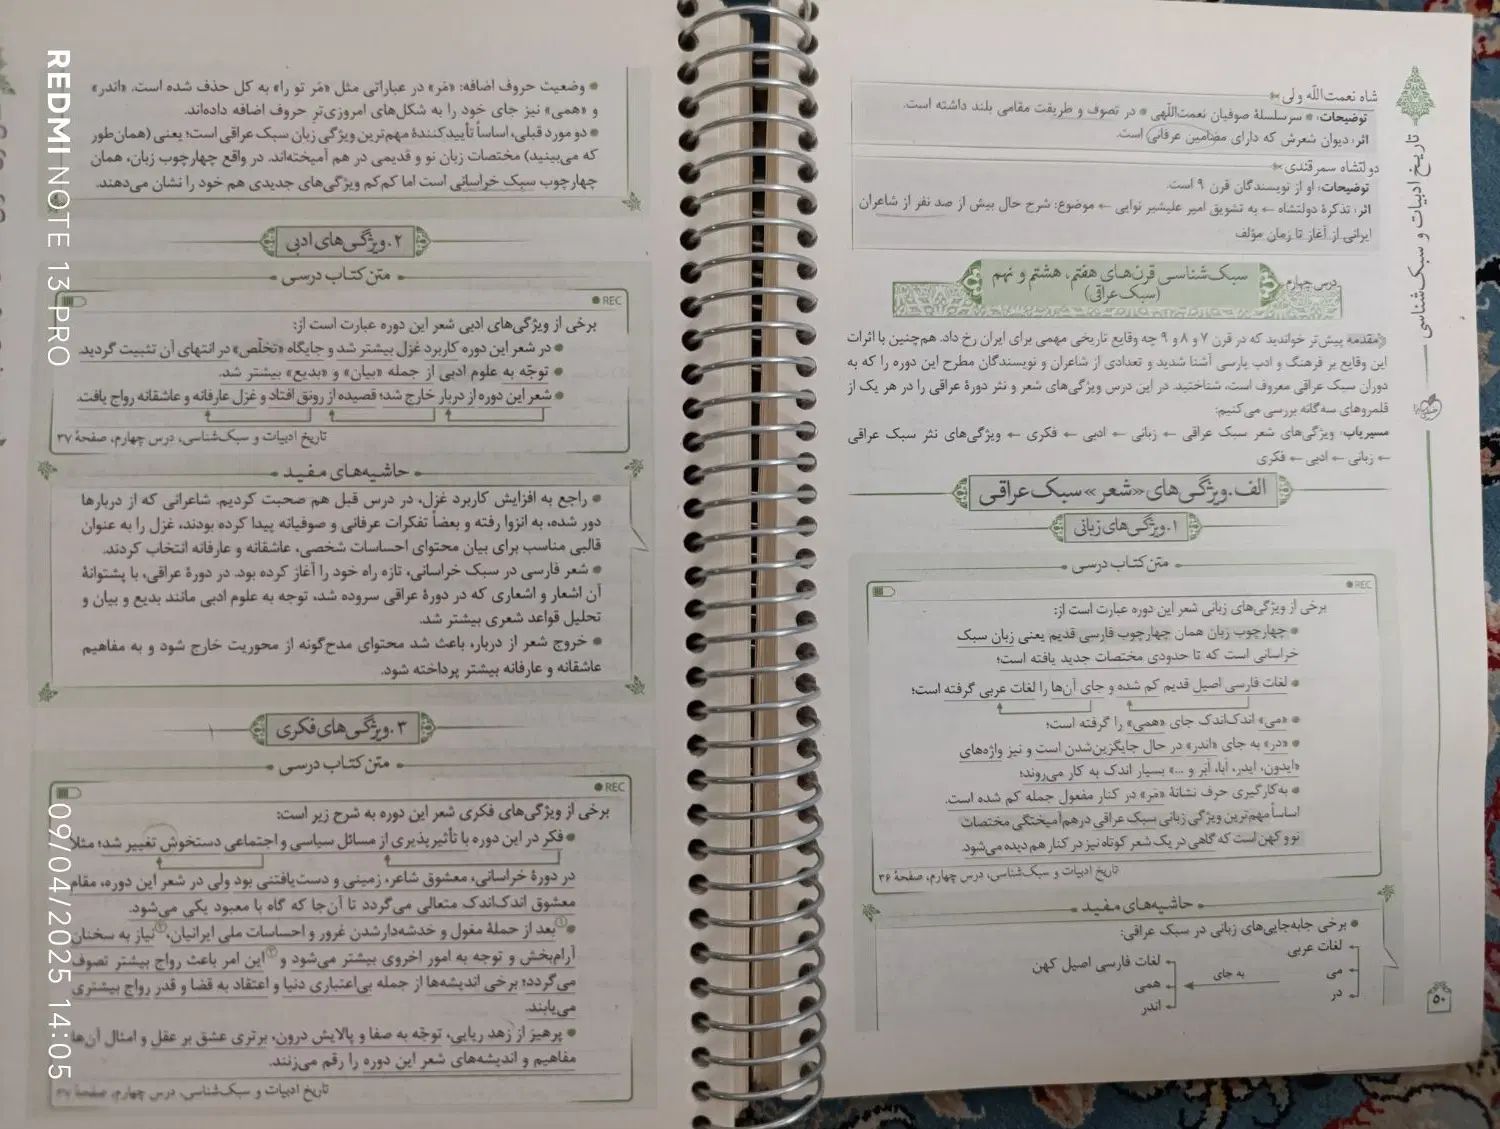 شاه نعمت‌اللّه ولی
توضیحات: • سرسلسلهٔ صوفیان نعمت‌اللّهی • در تصوف و طریقت مقامی بلند داشته است.
اثر: دیوان شعرش که دارای مضامین عرفانی است.
دولتشاه سمرقندی
توضیحات: او از نویسندگان قرن ۹ است.
اثر: تذکرهٔ دولتشاه ← به تشویق امیر علیشیر نوایی ← موضوع: شرح حال بیش از صد نفر از شاعران
ایرانی از آغاز تا زمان مؤلف
درس چهارم
سبک‌شناسی قرن‌های هفتم، هشتم و نهم
(سبک عراقی)
مقدمه پیش‌تر خواندید که در قرن ۷ و ۸ و ۹ چه وقایع تاریخی مهمی برای ایران رخ داد. هم‌چنین با اثرات
این وقایع بر فرهنگ و ادب پارسی آشنا شدید و تعدادی از شاعران و نویسندگان مطرح این دوره را که به
دوران سبک عراقی معروف است، شناختید. در این درس ویژگی‌های شعر و نثر دورهٔ عراقی را در هر یک از
قلمروهای سه‌گانه بررسی می‌کنیم:
مسیریاب: ویژگی‌های شعر سبک عراقی ← زبانی ← ادبی ← فکری ← ویژگی‌های نثر سبک عراقی
← زبانی ← ادبی ← فکری
الف. ویژگی‌های «شعر» سبک عراقی
۱. ویژگی‌های زبانی
متن کتاب درسی
REC
برخی از ویژگی‌های زبانی شعر این دوره عبارت است از:
• چهارچوب زبان همان چهارچوب فارسی قدیم یعنی زبان سبک
خراسانی است که تا حدودی مختصات جدید یافته است؛
• لغات فارسی اصیل قدیم کم شده و جای آن‌ها را لغات عربی گرفته است؛
• «می» اندک‌اندک جای «همی» را گرفته است؛
• «در» به جای «اندر» در حال جایگزین‌شدن است و نیز واژه‌های
«ایدون، ایدر، اَبا، اَبَر و ...» بسیار اندک به کار می‌روند؛
• به‌کارگیری حرف نشانهٔ «مَر» در کنار مفعول جمله کم شده است.
اساساً مهم‌ترین ویژگی زبانی سبک عراقی درهم‌آمیختگی مختصات
نو و کهن است که گاهی در یک شعر کوتاه نیز در کنار هم دیده می‌شود.
تاریخ ادبیات و سبک‌شناسی، درس چهارم، صفحهٔ ۳۶
حاشیه‌های مفید
• برخی جابه‌جایی‌های زبانی در سبک عراقی:
لغات عربی
می
در
به جای
لغات فارسی اصیل کهن
همی
اندر
تاریخ ادبیات و سبک‌شناسی
۵۰
• وضعیت حروف اضافه: «مَر» در عباراتی مثل «مَر تو را» به کل حذف شده است. «اندر»
و «همی» نیز جای خود را به شکل‌های امروزی‌تر حروف اضافه داده‌اند.
• دو مورد قبلی، اساساً تأییدکنندهٔ مهم‌ترین ویژگی زبان سبک عراقی است؛ یعنی (همان‌طور
که می‌بینید) مختصات زبان نو و قدیمی در هم آمیخته‌اند. در واقع چهارچوب زبان، همان
چهارچوب سبک خراسانی است اما کم‌کم ویژگی‌های جدیدی هم خود را نشان می‌دهند.
۲. ویژگی‌های ادبی
متن کتاب درسی
REC
برخی از ویژگی‌های ادبی شعر این دوره عبارت است از:
• در شعر این دوره کاربرد غزل بیشتر شد و جایگاه «تخلّص» در انتهای آن تثبیت گردید.
• توجّه به علوم ادبی از جمله «بیان» و «بدیع» بیشتر شد.
• شعر این دوره از دربار خارج شد؛ قصیده از رونق افتاد و غزل عارفانه و عاشقانه رواج یافت.
تاریخ ادبیات و سبک‌شناسی، درس چهارم، صفحهٔ ۳۷
حاشیه‌های مفید
• راجع به افزایش کاربرد غزل، در درس قبل هم صحبت کردیم. شاعرانی که از دربارها
دور شده، به انزوا رفته و بعضاً تفکرات عرفانی و صوفیانه پیدا کرده بودند، غزل را به عنوان
قالبی مناسب برای بیان محتوای احساسات شخصی، عاشقانه و عارفانه انتخاب کردند.
• شعر فارسی در سبک خراسانی، تازه راه خود را آغاز کرده بود. در دورهٔ عراقی، با پشتوانهٔ
آن اشعار و اشعاری که در دورهٔ عراقی سروده شد، توجه به علوم ادبی مانند بدیع و بیان و
تحلیل قواعد شعری بیشتر شد.
• خروج شعر از دربار، باعث شد محتوای مدح‌گونه از محوریت خارج شود و به مفاهیم
عاشقانه و عارفانه بیشتر پرداخته شود.
۳. ویژگی‌های فکری
متن کتاب درسی
REC
برخی از ویژگی‌های فکری شعر این دوره به شرح زیر است:
• فکر در این دوره با تأثیرپذیری از مسائل سیاسی و اجتماعی دستخوش تغییر شد؛ مثلا
در دورهٔ خراسانی، معشوق شاعر، زمینی و دست‌یافتنی بود ولی در شعر این دوره، مقام
معشوق اندک‌اندک متعالی می‌گردد تا آن‌جا که گاه با معبود یکی می‌شود.
• بعد از حملهٔ مغول و خدشه‌دارشدن غرور و احساسات ملی ایرانیان، نیاز به سخنان
آرام‌بخش و توجه به امور اخروی بیشتر می‌شود و این امر باعث رواج بیشتر تصوف
می‌گردد؛ برخی اندیشه‌ها از جمله بی‌اعتباری دنیا و اعتقاد به قضا و قدر رواج بیشتری
می‌یابند.
• پرهیز از زهد ریایی، توجّه به صفا و پالایش درون، برتری عشق بر عقل و امثال آن‌ها
مفاهیم و اندیشه‌های شعر این دوره را رقم می‌زنند.
تاریخ ادبیات و سبک‌شناسی، درس چهارم، صفحهٔ ۳۷
REDMI NOTE 13 PRO
09/04/2025 14:05